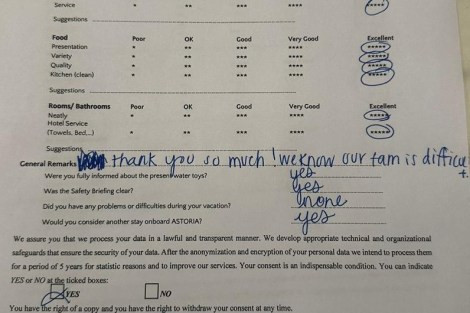 Service * ** *** **** *****
Suggestions
Food Poor OK Good Very Good Excellent
Presentation * ** *** **** *****
Variety * ** *** **** *****
Quality * ** *** **** *****
Kitchen (clean) * ** *** **** *****
Suggestions
Rooms/ Bathrooms Poor OK Good Very Good Excellent
Neatly * ** *** **** *****
Hotel Service
(Towels, Bed,..) * ** *** **** *****
Suggestions
General Remarks thank you so much! we know our fam is difficult.
Were you fully informed about the present water toys? yes
Was the Safety Briefing clear? yes
Did you have any problems or difficulties during your vacation? none
Would you consider another stay onboard ASTORIA? yes
We assure you that we process your data in a lawful and transparent manner. We develop appropriate technical and organizational
safeguards that ensure the security of your data. After the anonymization and encryption of your personal data we intend to process them
for a period of 5 years for statistic reasons and to improve our services. Your consent is an indispensable condition. You can indicate
YES or NO at the ticked boxes:
YES NO
You have the right of a copy and you have the right to withdraw your consent at any time.